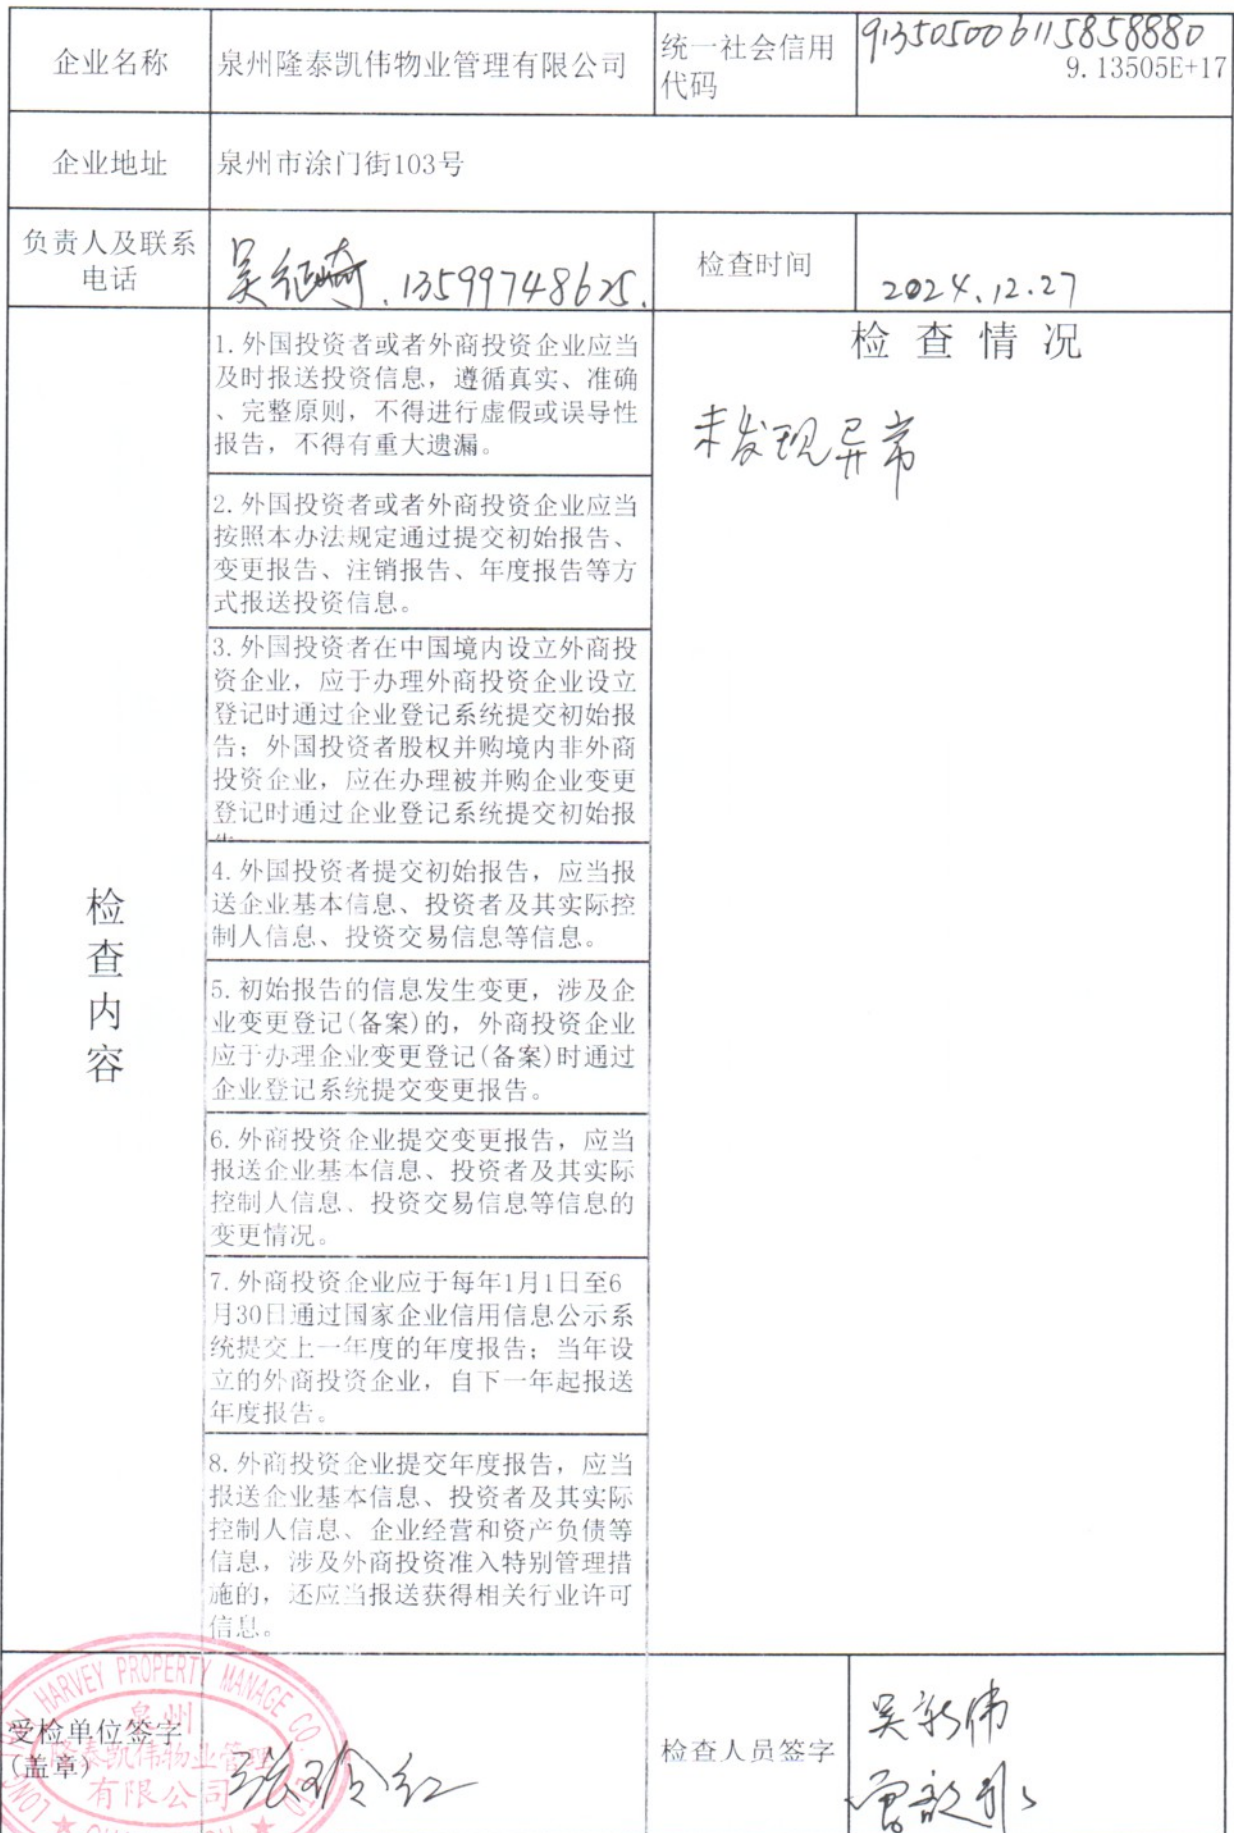 企业名称
泉州隆泰凯伟物业管理有限公司
统一社会信用
代码
913505006115858880
9.13505E+17
企业地址
泉州市涂门街103号
负责人及联系
电话
吴 13599748625.
检查时间
2024.12.27
检查内容
1.外国投资者或者外商投资企业应当
及时报送投资信息，遵循真实、准确
、完整原则，不得进行虚假或误导性
报告，不得有重大遗漏。
2.外国投资者或者外商投资企业应当
按照本办法规定通过提交初始报告、
变更报告、注销报告、年度报告等方
式报送投资信息。
3.外国投资者在中国境内设立外商投
资企业，应于办理外商投资企业设立
登记时通过企业登记系统提交初始报
告；外国投资者股权并购境内非外商
投资企业，应在办理被并购企业变更
登记时通过企业登记系统提交初始报
4.外国投资者提交初始报告，应当报
送企业基本信息、投资者及其实际控
制人信息、投资交易信息等信息。
5.初始报告的信息发生变更，涉及企
业变更登记(备案)的，外商投资企业
应于办理企业变更登记(备案)时通过
企业登记系统提交变更报告。
6.外商投资企业提交变更报告，应当
报送企业基本信息、投资者及其实际
控制人信息、投资交易信息等信息的
变更情况。
7.外商投资企业应于每年1月1日至6
月30日通过国家企业信用信息公示系
统提交上一年度的年度报告；当年设
立的外商投资企业，自下一年起报送
年度报告。
8.外商投资企业提交年度报告，应当
报送企业基本信息、投资者及其实际
控制人信息、企业经营和资产负债等
信息，涉及外商投资准入特别管理措
施的，还应当报送获得相关行业许可
信息。
检查情况
未发现异常
受检单位签字
(盖章)
HARVEY PROPERTY MANAGE CO
泉州
隆泰凯伟物业管理
有限公司
张玲红
检查人员签字
吴新伟